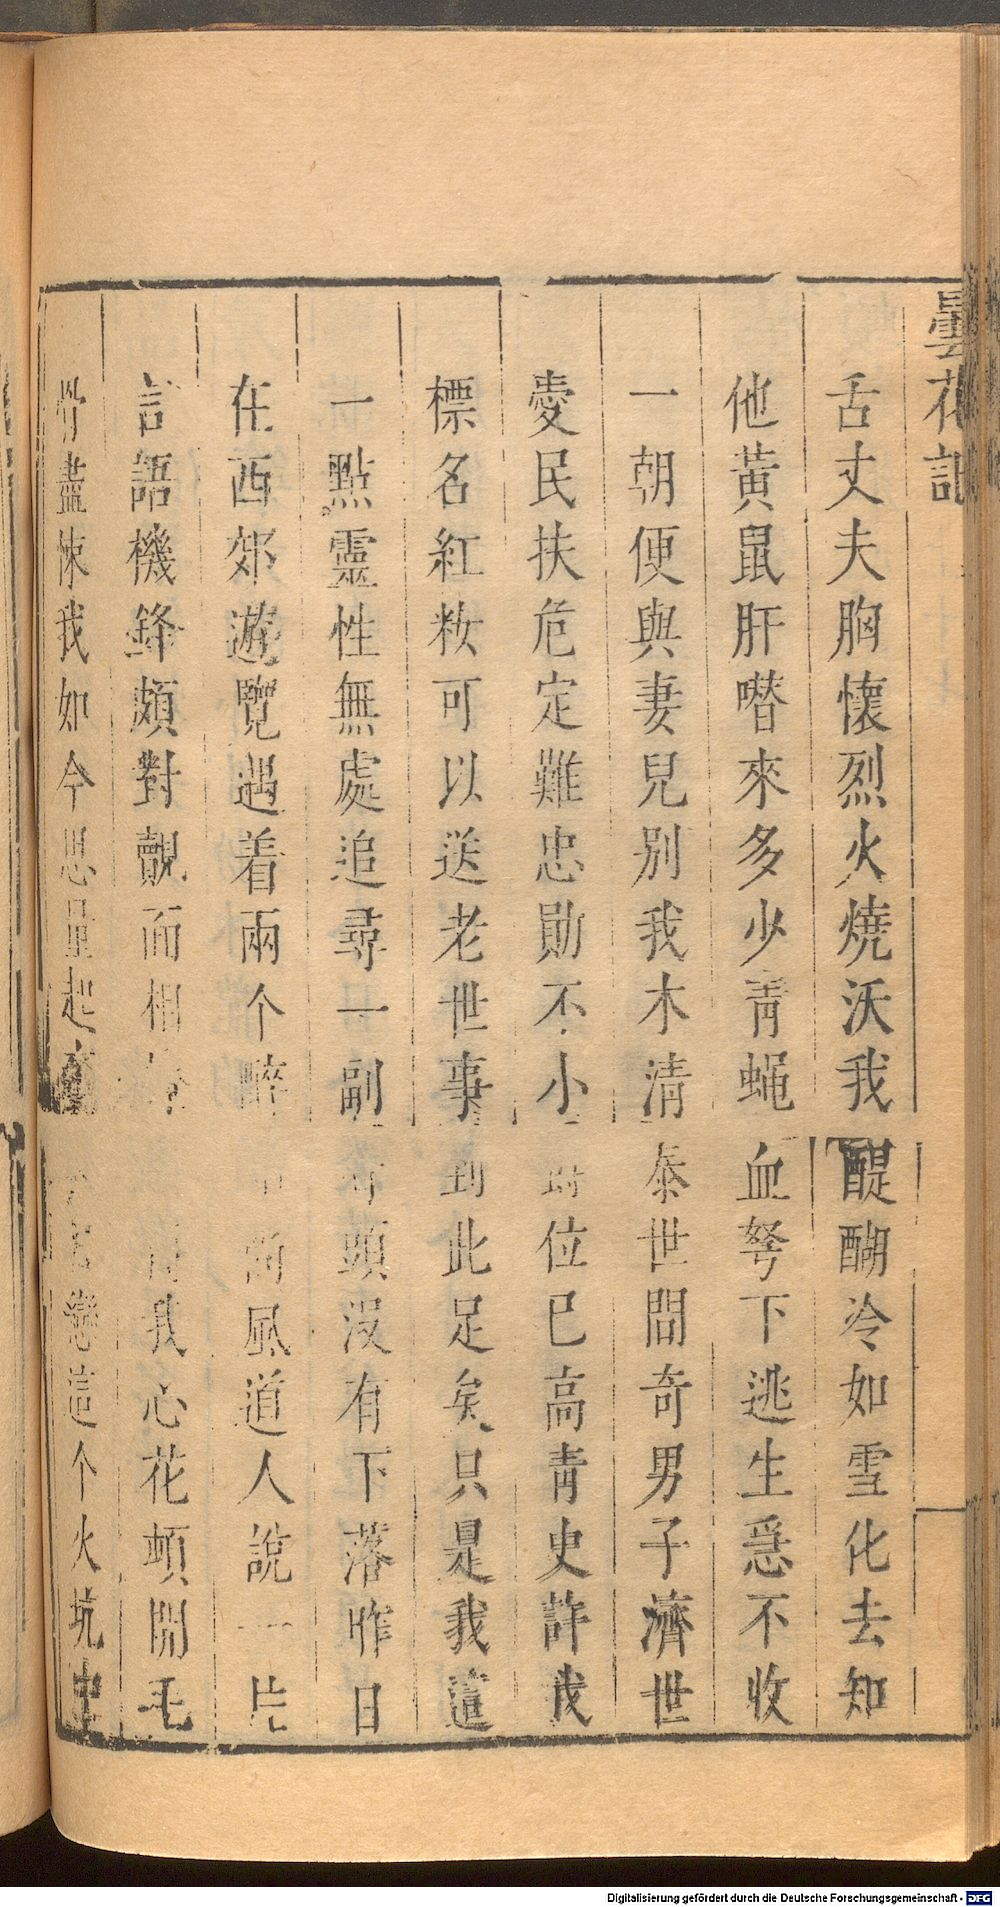 曇花記
舌丈夫胸懷烈火燒沃我醍醐冷如雪化去知
他黃鼠肝喈來多少青蝇血弩下逃生惡不收
一朝便與妻兒別我木清泰世間奇男子濟世
愛民扶危定難忠勛不小 位已高青史許我
標名紅粧可以送老世事到此足矣只是我這
一點靈性無處追尋一副 頭沒有下落昨日
在西郊遊覽遇着兩个醉 風道人說一片
言語機鋒頗對覿面相 我心花頓開毛
骨盡悚我如今思量起 戀這个火坑
Digitalisierung gefördert durch die Deutsche Forschungsgemeinschaft - DFG